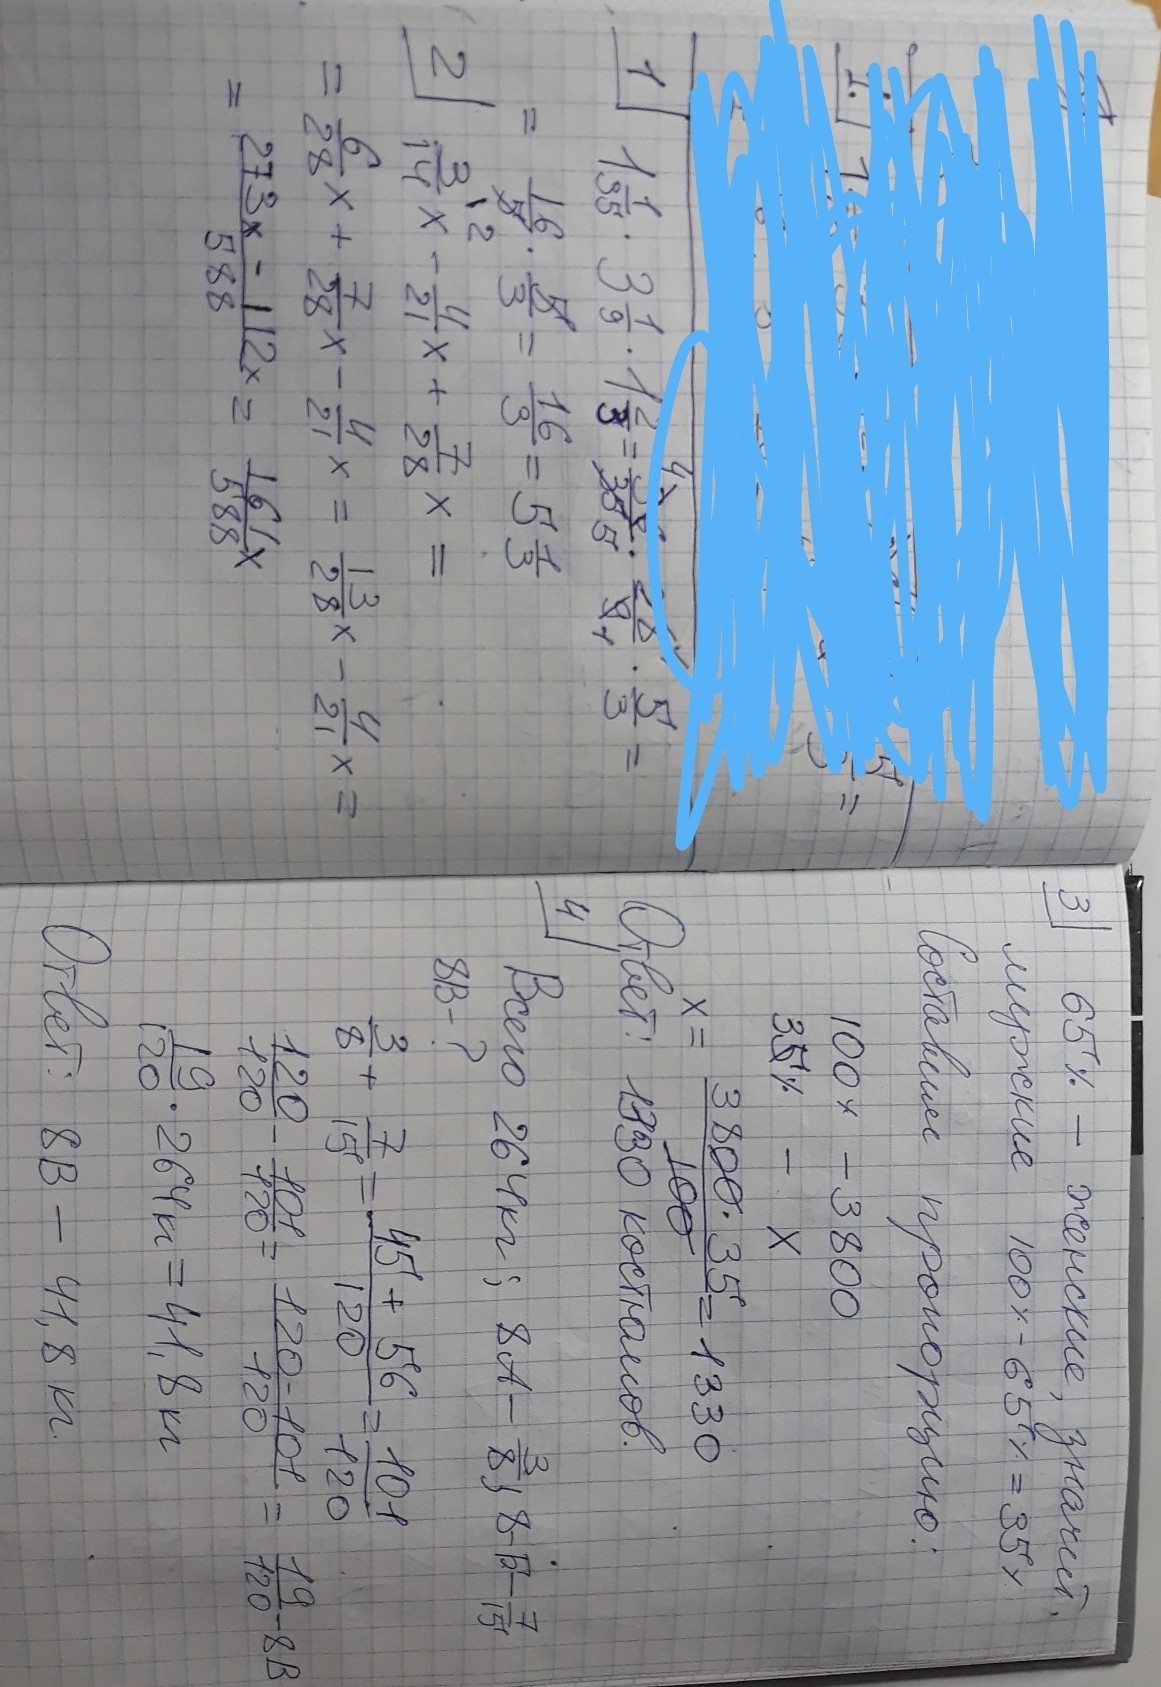 1
1 1/35 · 3 1/9 · 1 2/3 = 36/35 · 28/9 · 5/3 =
= 16/5 · 5/3 = 16/3 = 5 1/3
2
3/14 x - 4/21 x + 7/28 x =
= 6/28 x + 7/28 x - 4/21 x = 13/28 x - 4/21 x =
= 273x - 112x / 588 = 161/588 x
3
65% - женские, значит,
мужские 100% - 65% = 35%
Составим пропорцию:
100% - 3800
35% - x
x = 3800 · 35 / 100 = 1330
Ответ: 1330 костюмов.
4
Всего 264кг; 8А - 3/8; 8-Б - 7/15
8В - ?
3/8 + 7/15 = 45 + 56 / 120 = 101/120
120/120 - 101/120 = 120 - 101 / 120 = 19/120 - 8В
19/120 · 264кг = 41,8кг
Ответ: 8В - 41,8кг.